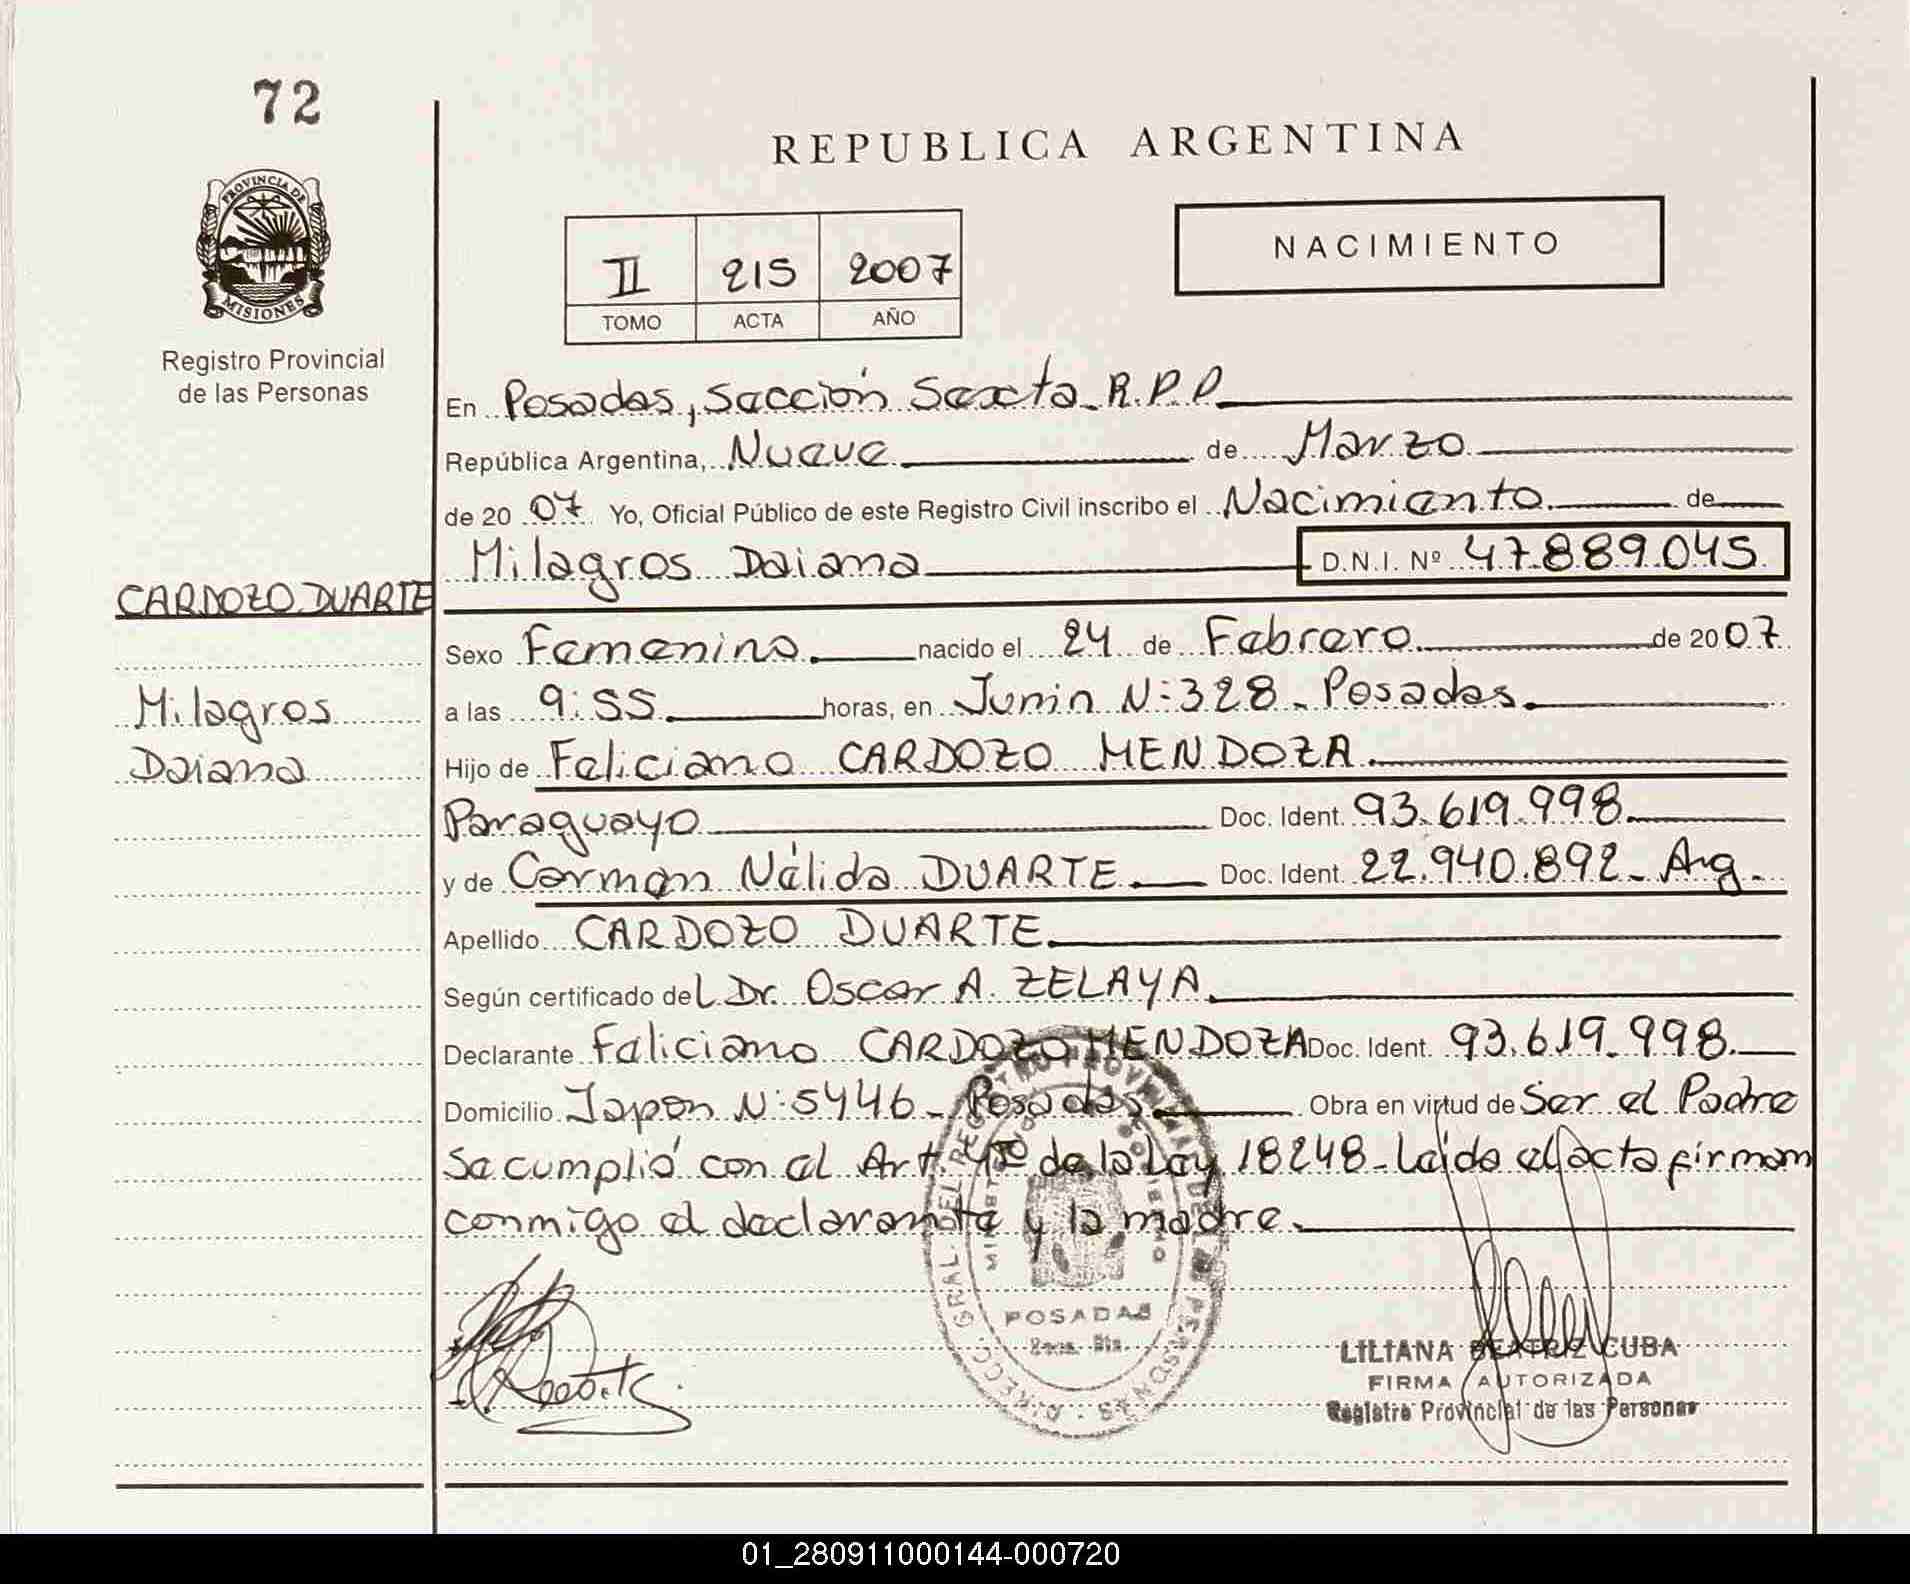 72
PROVINCIA DE
MISIONES
Registro Provincial
de las Personas
REPUBLICA ARGENTINA
NACIMIENTO
II 215 2007
TOMO ACTA AÑO
En Posadas, Sección Sexta R.P.P.
República Argentina, Nueve de Marzo
de 2007 Yo, Oficial Público de este Registro Civil inscribo el Nacimiento de
Milagros Daiana D.N.I. Nº 47.889.045
CARDOZO DUARTE
Sexo Femenino nacido el 24 de Febrero de 2007
Milagros
Daiana
a las 9:55 horas, en Junin N: 328 - Posadas
Hijo de Feliciano CARDOZO MENDOZA
Paraguayo Doc. Ident. 93.619.998
y de Carmen Nélida DUARTE Doc. Ident. 22.940.892 - Arg.
Apellido CARDOZO DUARTE
Según certificado del Dr. Oscar A. ZELAYA
Declarante Feliciano CARDOZO MENDOZA Doc. Ident. 93.619.998
Domicilio Japón N: 5446 - Posadas Obra en virtud de Ser el Padre
Se cumplió con el Art. 4to de la Ley 18248 - Leída el acta firman
conmigo el declarante y la madre.
POSADAS
LILIANA BEATRIZ CUBA
FIRMA AUTORIZADA
Registro Provincial de las Personas
01_280911000144-000720